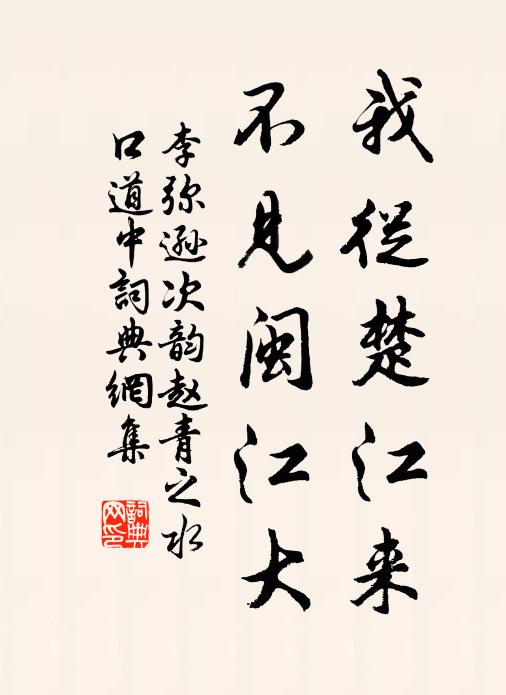 我從楚江来
不見闽江大
李弥遜次韵赵青之水
口道中詞典網集
詞典
网印